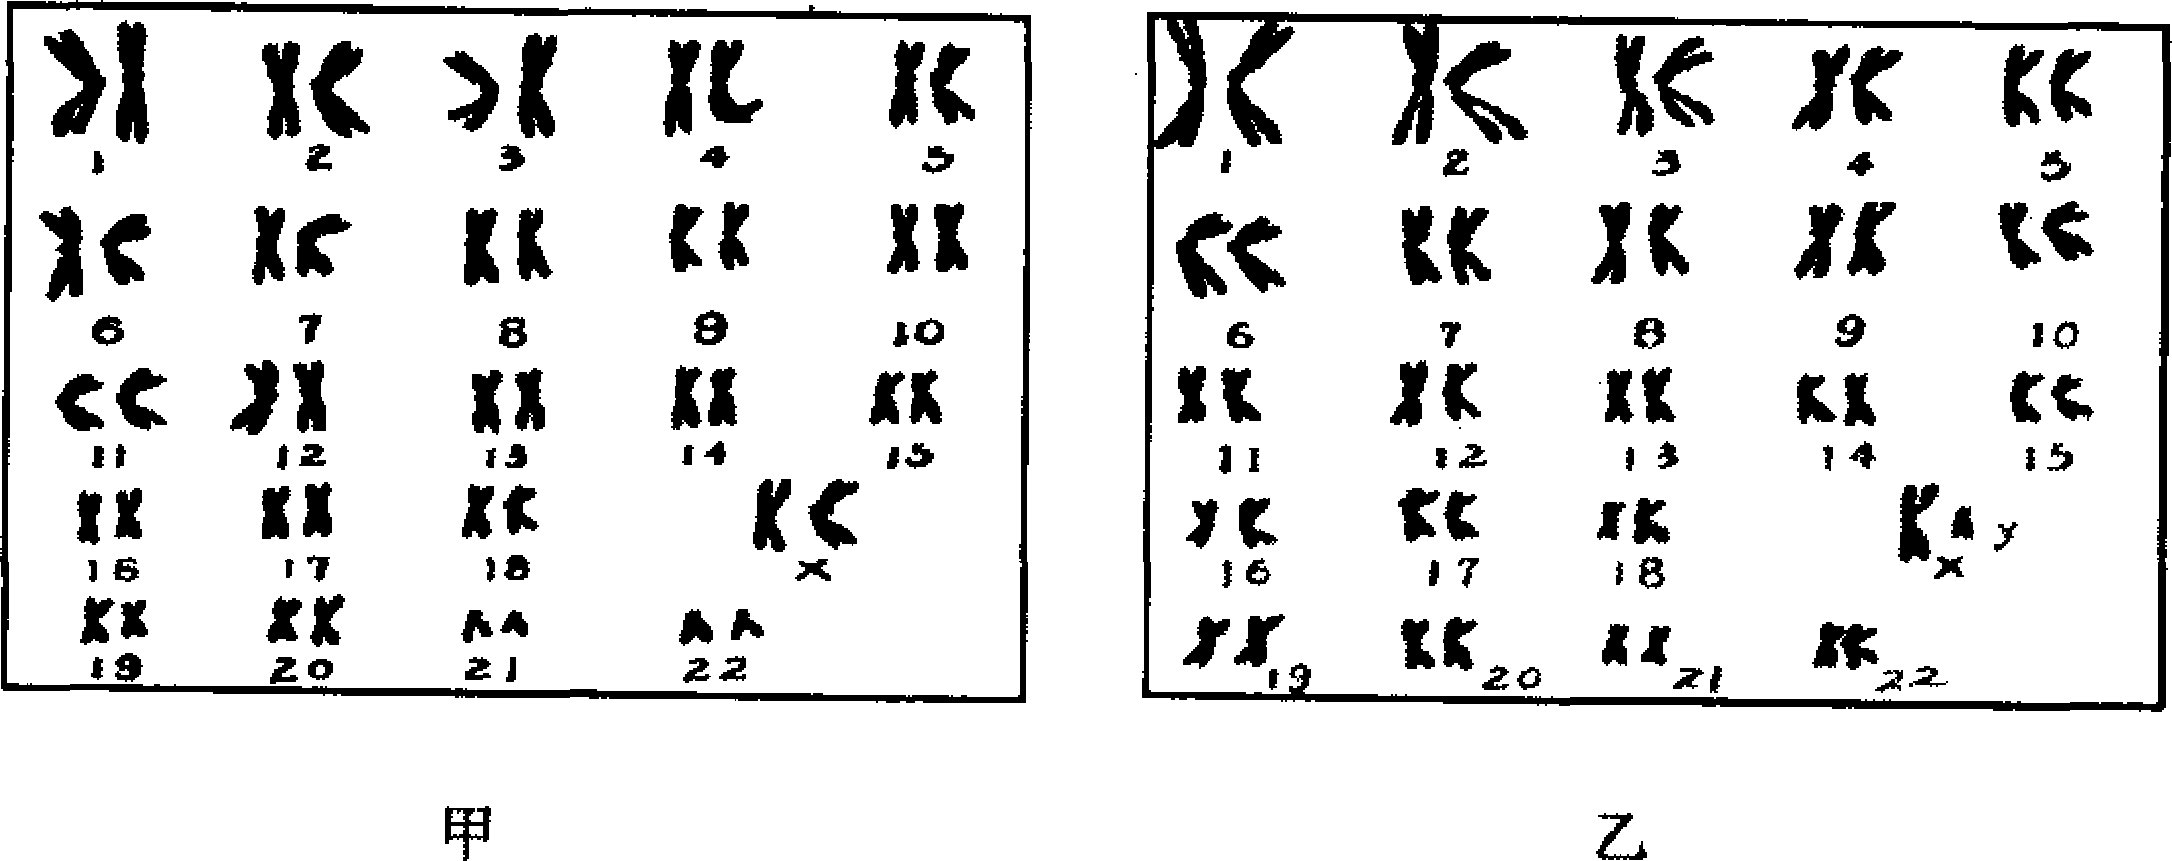 1 2 3 4 5
6 7 8 9 10
11 12 13 14 15
16 17 18 X
19 20 21 22
1 2 3 4 5
6 7 8 9 10
11 12 13 14 15
16 17 18 X y
19 20 21 22
甲
乙